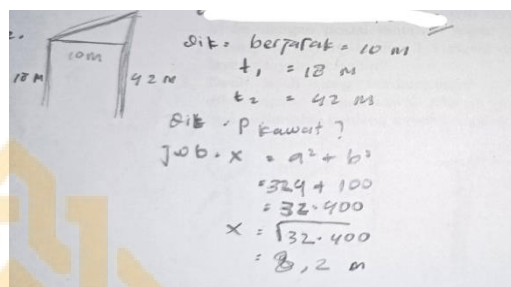 2.
10 m
18 M
42 m
Dik = berjarak = 10 m
t₁ = 18 m
t₂ = 42 m
Dit . P kawat ?
Jwb . x = a² + b²
= 324 + 100
= 32.400
x = √32.400
= 8,2 m